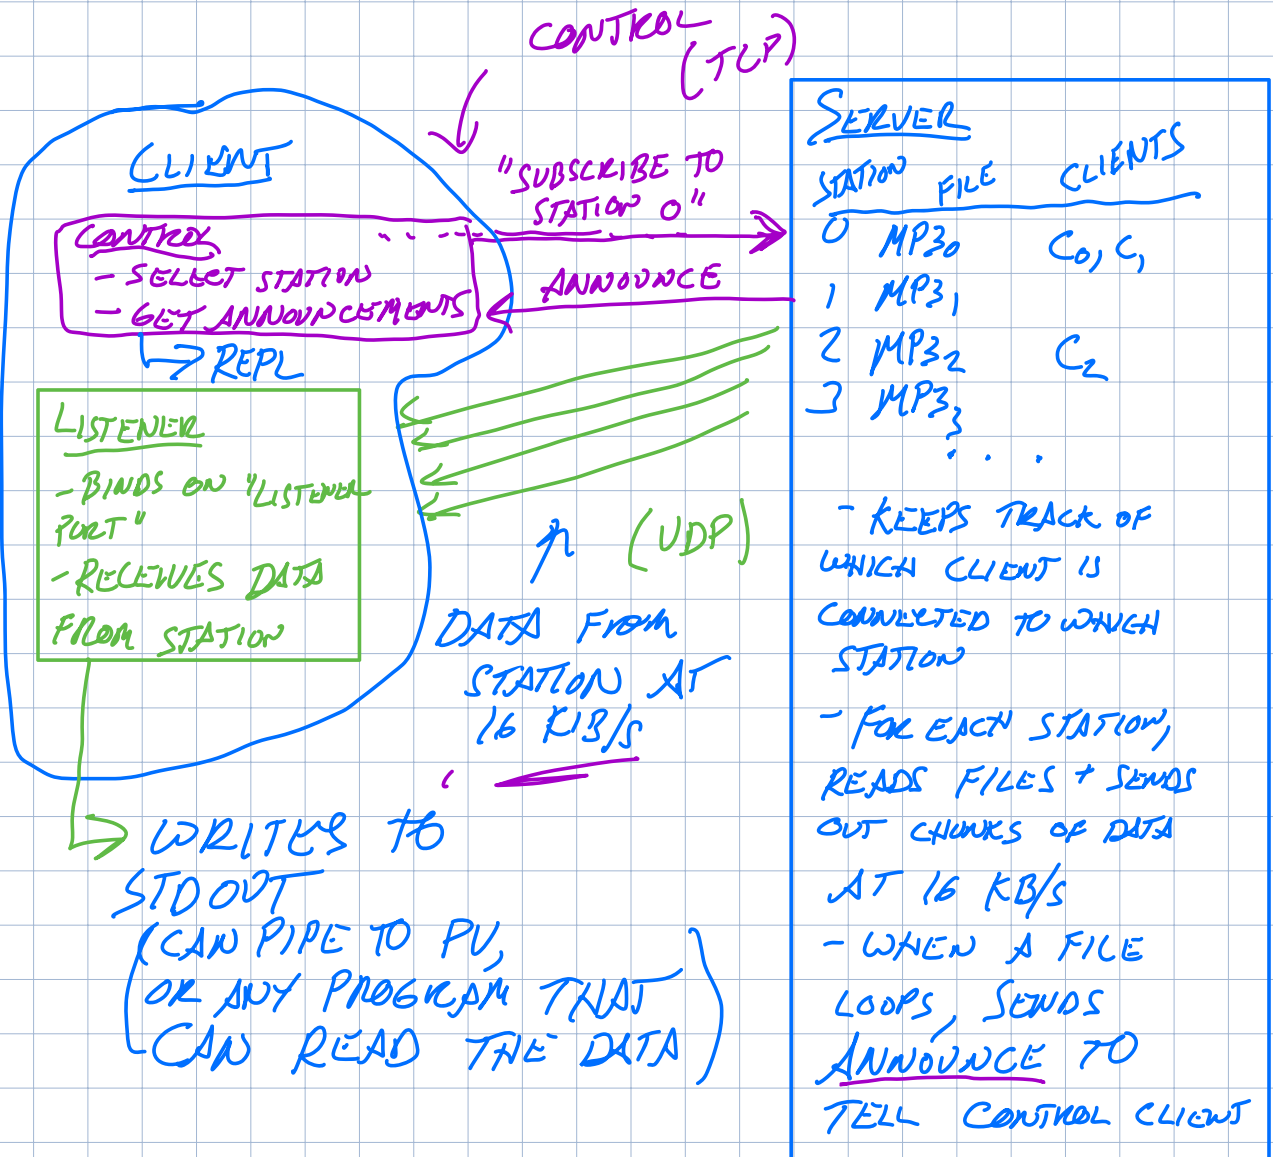 CONTROL
(TCP)
CLIENT
CONTROL
- SELECT STATION
- GET ANNOUNCEMENTS
REPL
"SUBSCRIBE TO
STATION 0"
ANNOUNCE
LISTENER
- BINDS ON "LISTENER
PORT"
- RECEIVES DATA
FROM STATION
(UDP)
DATA FROM
STATION AT
16 KIB/S
WRITES TO
STDOUT
(CAN PIPE TO PV,
OR ANY PROGRAM THAT
CAN READ THE DATA)
SERVER
STATION FILE CLIENTS
0 MP3₀ C₀, C₁
1 MP3₁
2 MP3₂ C₂
3 MP3₃
. . .
- KEEPS TRACK OF
WHICH CLIENT IS
CONNECTED TO WHICH
STATION
- FOR EACH STATION,
READS FILES + SENDS
OUT CHUNKS OF DATA
AT 16 KB/S
- WHEN A FILE
LOOPS, SENDS
ANNOUNCE TO
TELL CONTROL CLIENT